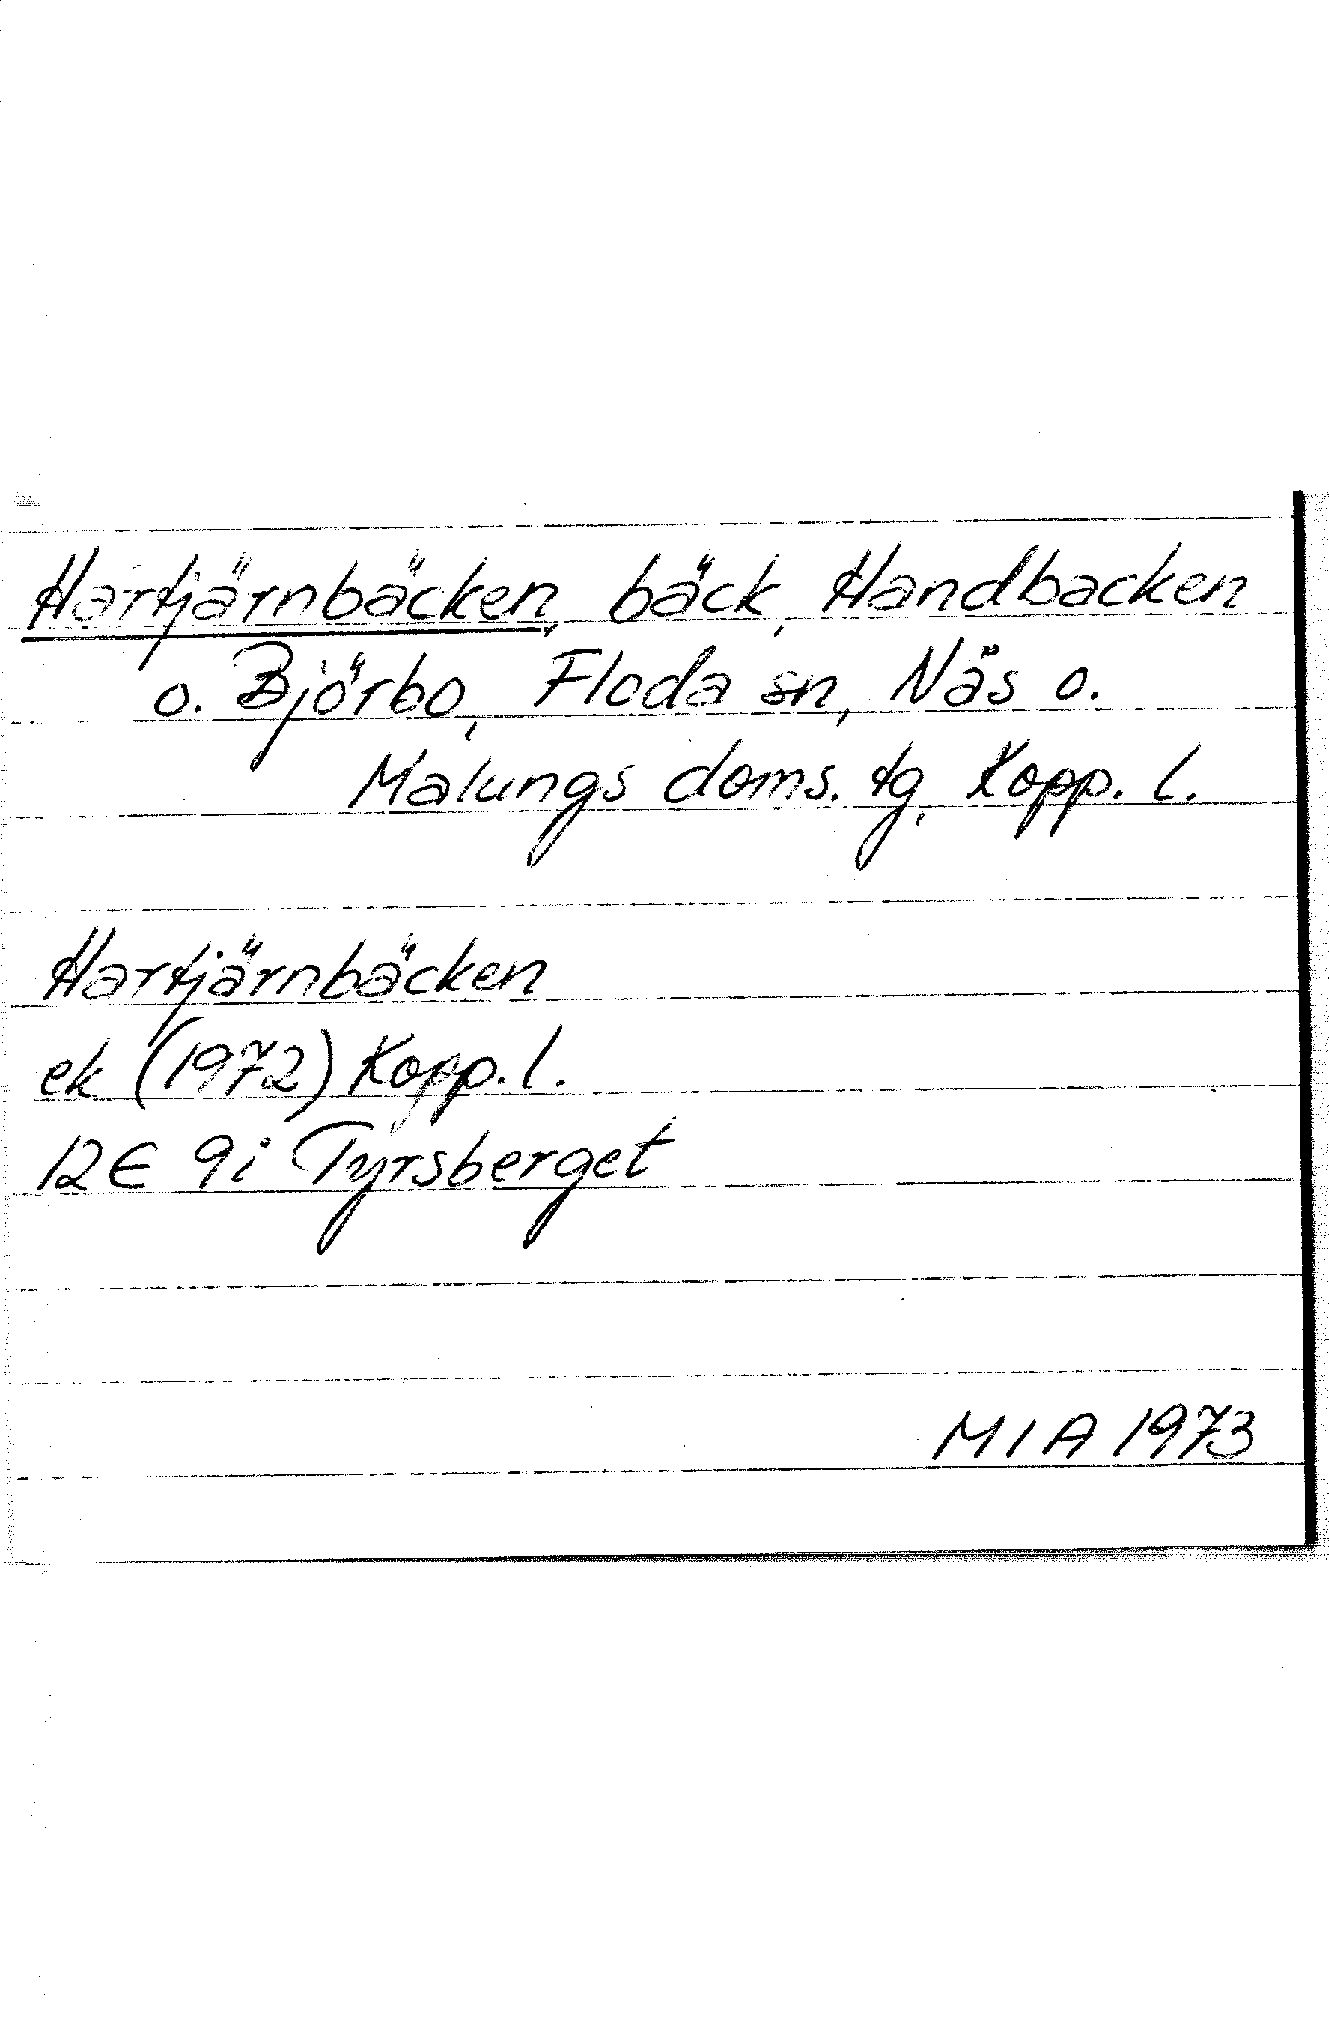 Hartjärnbäcken, bäck, Handbacken
o. Björbo, Floda sn, Näs o.
Malungs doms. tg, Kopp. l.
Hartjärnbäcken
ek (1972) Kopp. l.
12E 9i Tyrsberget
MIA 1973